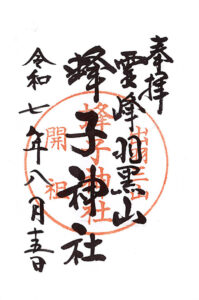 奉拝
霊峰羽黒山
蜂子神社
令和七年八月十五日
出羽三山
蜂子神社
開祖